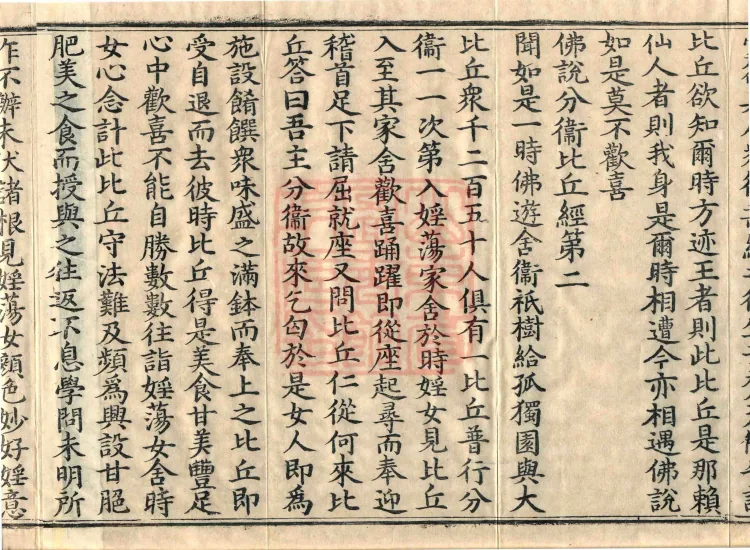 比丘欲知爾時方迹王者則此比丘是那賴
仙人者則我身是爾時相遭今亦相遇佛說
如是莫不歡喜
佛說分衞比丘經第二
聞如是一時佛遊舍衞祇樹給孤獨園與大
比丘衆千二百五十人俱有一比丘普行分
衞一一次第入婬蕩家舍於時婬女見比丘
入至其家舍歡喜踊躍即從座起尋而奉迎
稽首足下請屈就座又問比丘仁從何來比
丘答曰吾主分衞故來乞匃於是女人即為
施設餚饌衆味盛之滿鉢而奉上之比丘即
受自退而去彼時比丘得是美食甘美豐足
心中歡喜不能自勝數數往詣婬蕩女舍時
女心念計此比丘守法難及頻為興設甘脆
肥美之食而授與之往返不息學問未明所
作不辦未伏諸根見婬蕩女顏色妙好婬意